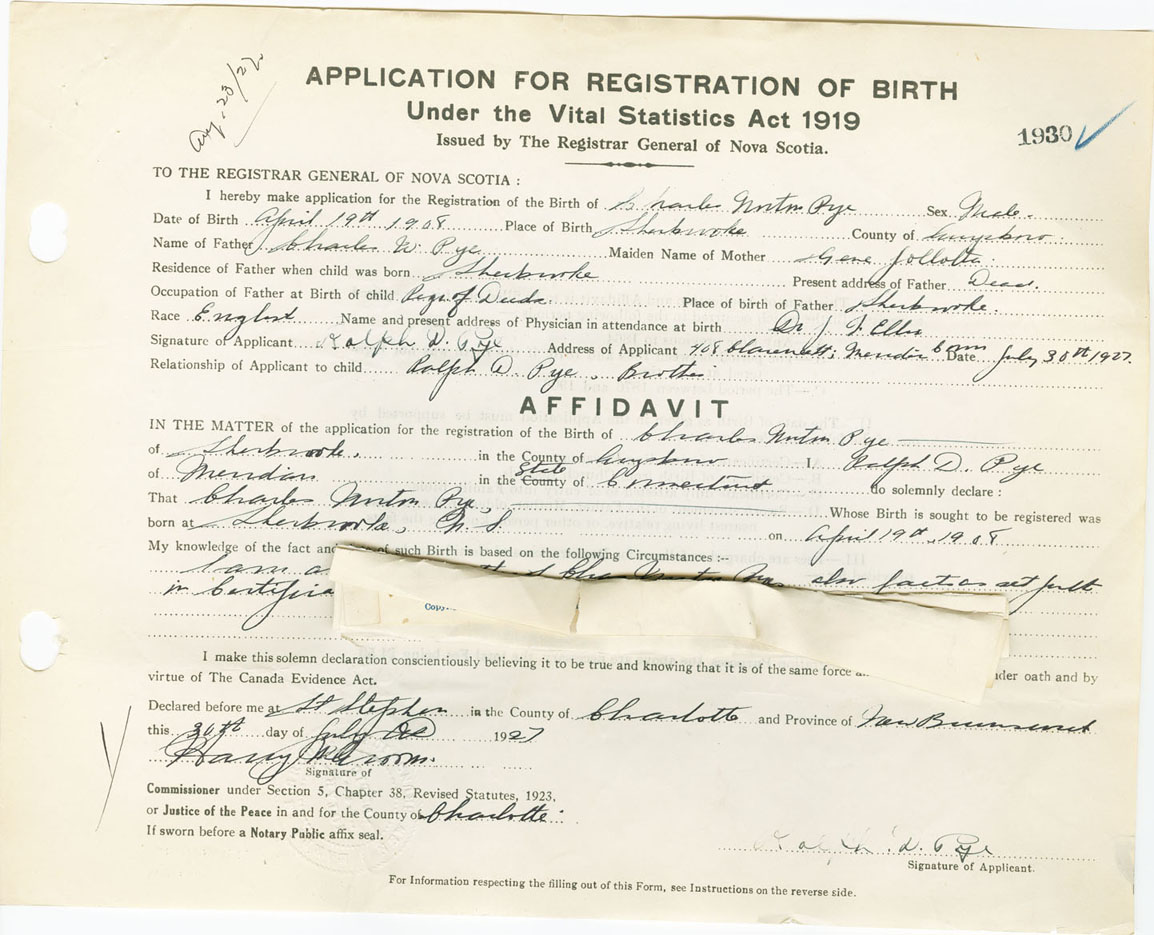 Aug. 23/27.
APPLICATION FOR REGISTRATION OF BIRTH
Under the Vital Statistics Act 1919
Issued by The Registrar General of Nova Scotia.
1930
TO THE REGISTRAR GENERAL OF NOVA SCOTIA :
I hereby make application for the Registration of the Birth of Charles Norton Pye Sex Male.
Date of Birth April 19th 1908 Place of Birth Sherbrooke County of Guysboro
Name of Father Charles W. Pye Maiden Name of Mother Gene
Residence of Father when child was born Sherbrooke Present address of Father Dead.
Occupation of Father at Birth of child Regr of Deeds. Place of birth of Father Sherbrooke.
Race English Name and present address of Physician in attendance at birth Dr
Signature of Applicant Ralph D. Pye Address of Applicant 408 Conn Date July 30th 1927.
Relationship of Applicant to child Ralph D. Pye, Brother
AFFIDAVIT
IN THE MATTER of the application for the registration of the Birth of Charles Norton Pye
of Sherbrooke, in the County of Guysboro I, Ralph D. Pye
of in the State County of do solemnly declare :
That Charles Norton Pye, Whose Birth is sought to be registered was
born at Sherbrooke, N. S. on April 19th, 1908
My knowledge of the fact and of such Birth is based on the following Circumstances :--
I am also facts as set forth
in
Copy
I make this solemn declaration conscientiously believing it to be true and knowing that it is of the same force under oath and by
virtue of The Canada Evidence Act.
Declared before me at St Stephen in the County of Charlotte and Province of New Brunswick
this 30th day of July 1927
Harry
Signature of
Commissioner under Section 5, Chapter 38, Revised Statutes, 1923,
or Justice of the Peace in and for the County of Charlotte
If sworn before a Notary Public affix seal.
Ralph D. Pye
Signature of Applicant.
For Information respecting the filling out of this Form, see Instructions on the reverse side.